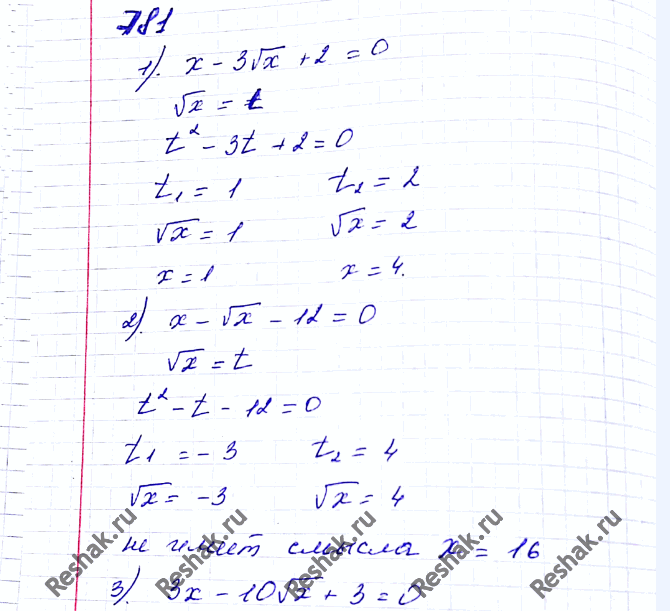 781
1). x - 3√x + 2 = 0
√x = t
t² - 3t + 2 = 0
t₁ = 1 t₂ = 2
√x = 1 √x = 2
x = 1 x = 4.
2). x - √x - 12 = 0
√x = t
t² - t - 12 = 0
t₁ = - 3 t₂ = 4
√x = -3 √x = 4
не имеет смысла x = 16
3). 3x - 10√x + 3 = 0
Reshak.ru Reshak.ru Reshak.ru Reshak.ru Reshak.ru